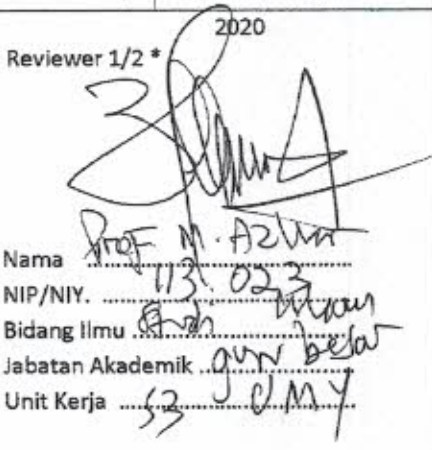 2020
Reviewer 1/2 *
Nama Prof M. Azhar
NIP/NIY. 113. 023
Bidang Ilmu
Jabatan Akademik guru besar
Unit Kerja S3 UMY